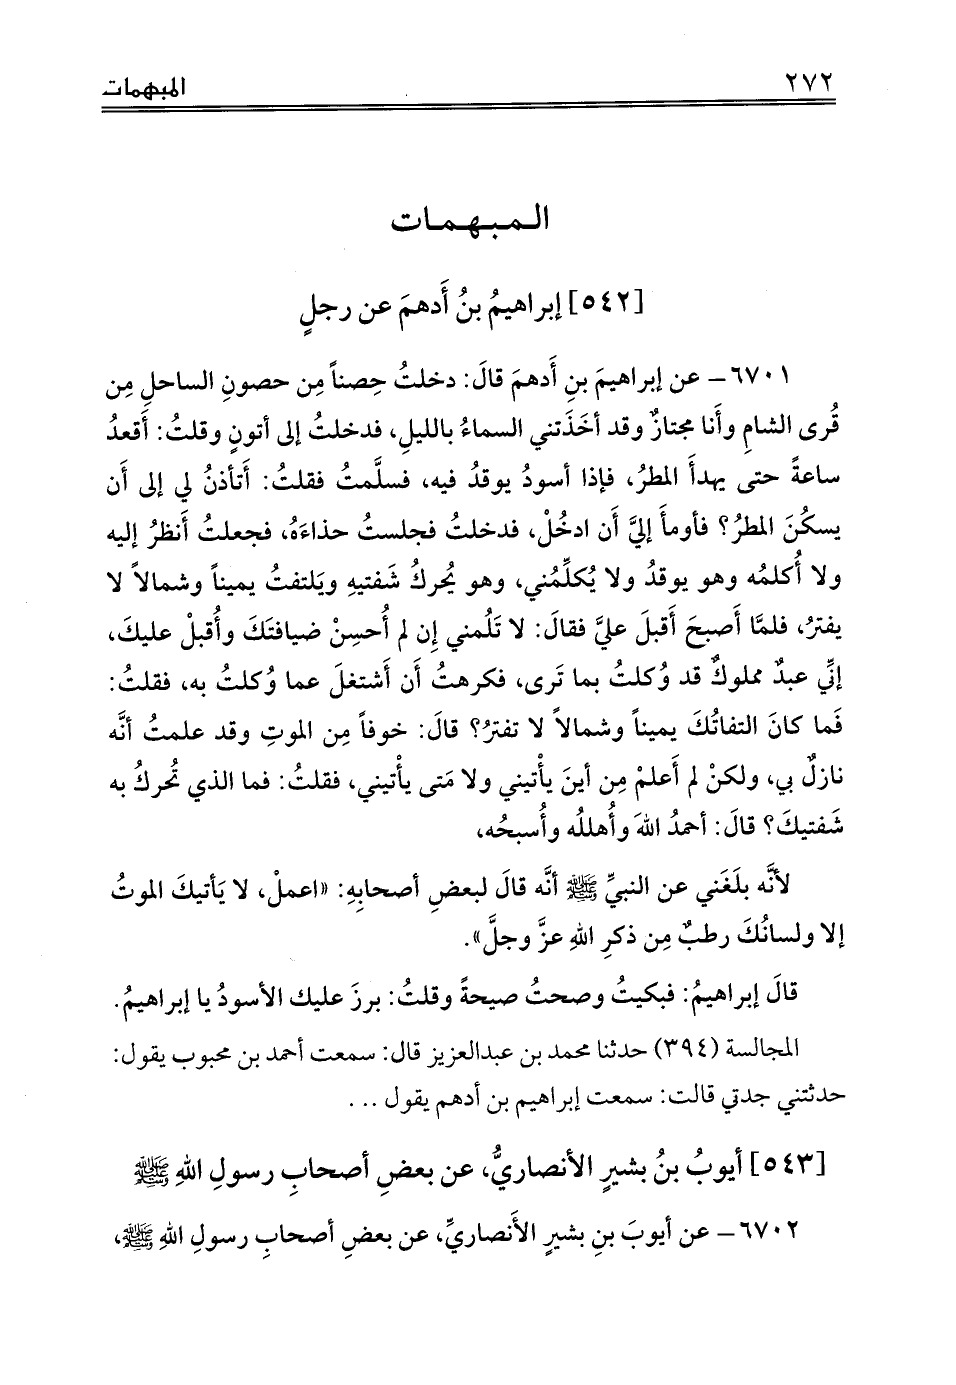 ٢٧٢
المبهمات
المـبـهـمـات
[٥٤٢] إبراهيمُ بنُ أَدهمَ عن رجلٍ
٦٧٠١ – عن إبراهيمَ بنِ أَدهمَ قالَ: دخلتُ حِصناً مِن حصونِ الساحلِ مِن
قُرى الشامِ وأَنا مجتازٌ وقد أخَذَتني السماءُ بالليلِ، فدخلتُ إلى أتونٍ وقلتُ: أَقعدُ
ساعةً حتى يهدأَ المطرُ، فإذا أسودُ يوقدُ فيه، فسلَّمتُ فقلتُ: أَتأذنُ لي إلى أَن
يسكُنَ المطرُ؟ فأومأَ إليَّ أَن ادخُلْ، فدخلتُ فجلستُ حذاءَهُ، فجعلتُ أَنظرُ إليه
ولا أُكلمُه وهو يوقدُ ولا يُكلِّمُني، وهو يُحركُ شَفتيهِ ويَلتفتُ يميناً وشمالاً لا
يفترُ، فلمَّا أَصبحَ أَقبلَ عليَّ فقالَ: لا تَلُمني إن لم أُحسِنْ ضيافتَكَ وأُقبلْ عليكَ،
إنِّي عبدٌ مملوكٌ قد وُكلتُ بما تَرى، فكرهتُ أَن أَشتغلَ عما وُكلتُ به، فقلتُ:
فَما كانَ التفاتُكَ يميناً وشمالاً لا تفترُ؟ قالَ: خوفاً مِن الموتِ وقد علمتُ أنَّه
نازلٌ بي، ولكنْ لم أَعلمْ مِن أينَ يأْتيني ولا مَتى يأْتيني، فقلتُ: فما الذي تُحركُ به
شَفتيكَ؟ قالَ: أحمدُ اللهَ وأُهللُه وأُسبحُه،
لأنَّه بلَغَني عن النبيِّ ﷺ أنَّه قالَ لبعضِ أصحابِهِ: «اعملْ، لا يَأتيكَ الموتُ
إلا ولسانُكَ رطبٌ مِن ذكرِ اللهِ عزَّ وجلَّ».
قالَ إبراهيمُ: فبكيتُ وصحتُ صيحةً وقلتُ: برزَ عليك الأسودُ يا إبراهيمُ.
المجالسة (٣٩٤) حدثنا محمد بن عبدالعزيز قال: سمعت أحمد بن محبوب يقول:
حدثتني جدتي قالت: سمعت إبراهيم بن أدهم يقول ...
[٥٤٣] أيوبُ بنُ بشيرٍ الأنصاريُّ، عن بعضِ أصحابِ رسولِ اللهِ ﷺ
٦٧٠٢ – عن أيوبَ بنِ بشيرٍ الأَنصاريِّ، عن بعضِ أصحابِ رسولِ اللهِ ﷺ،